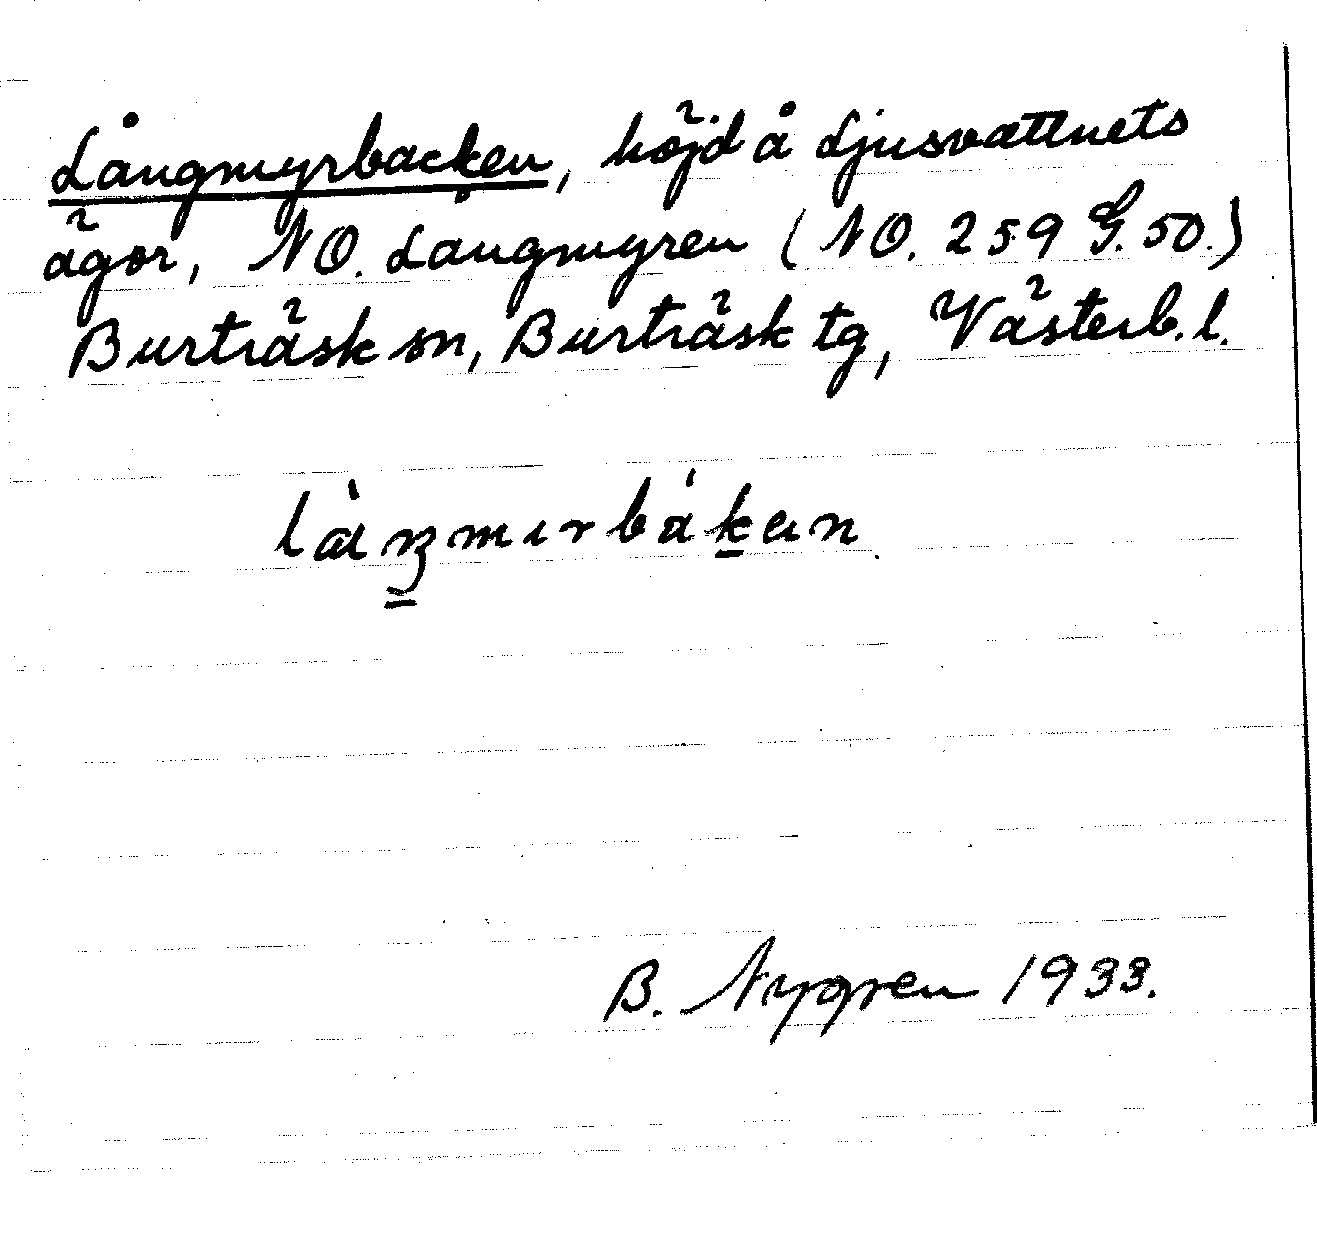 Långmyrbacken, höjd å Ljusvattnets
ägor, NO. Långmyren (NO. 259 G. 50.)
Burträsk sn, Burträsk tg, Västerb. l.
B. Nygren 1933.